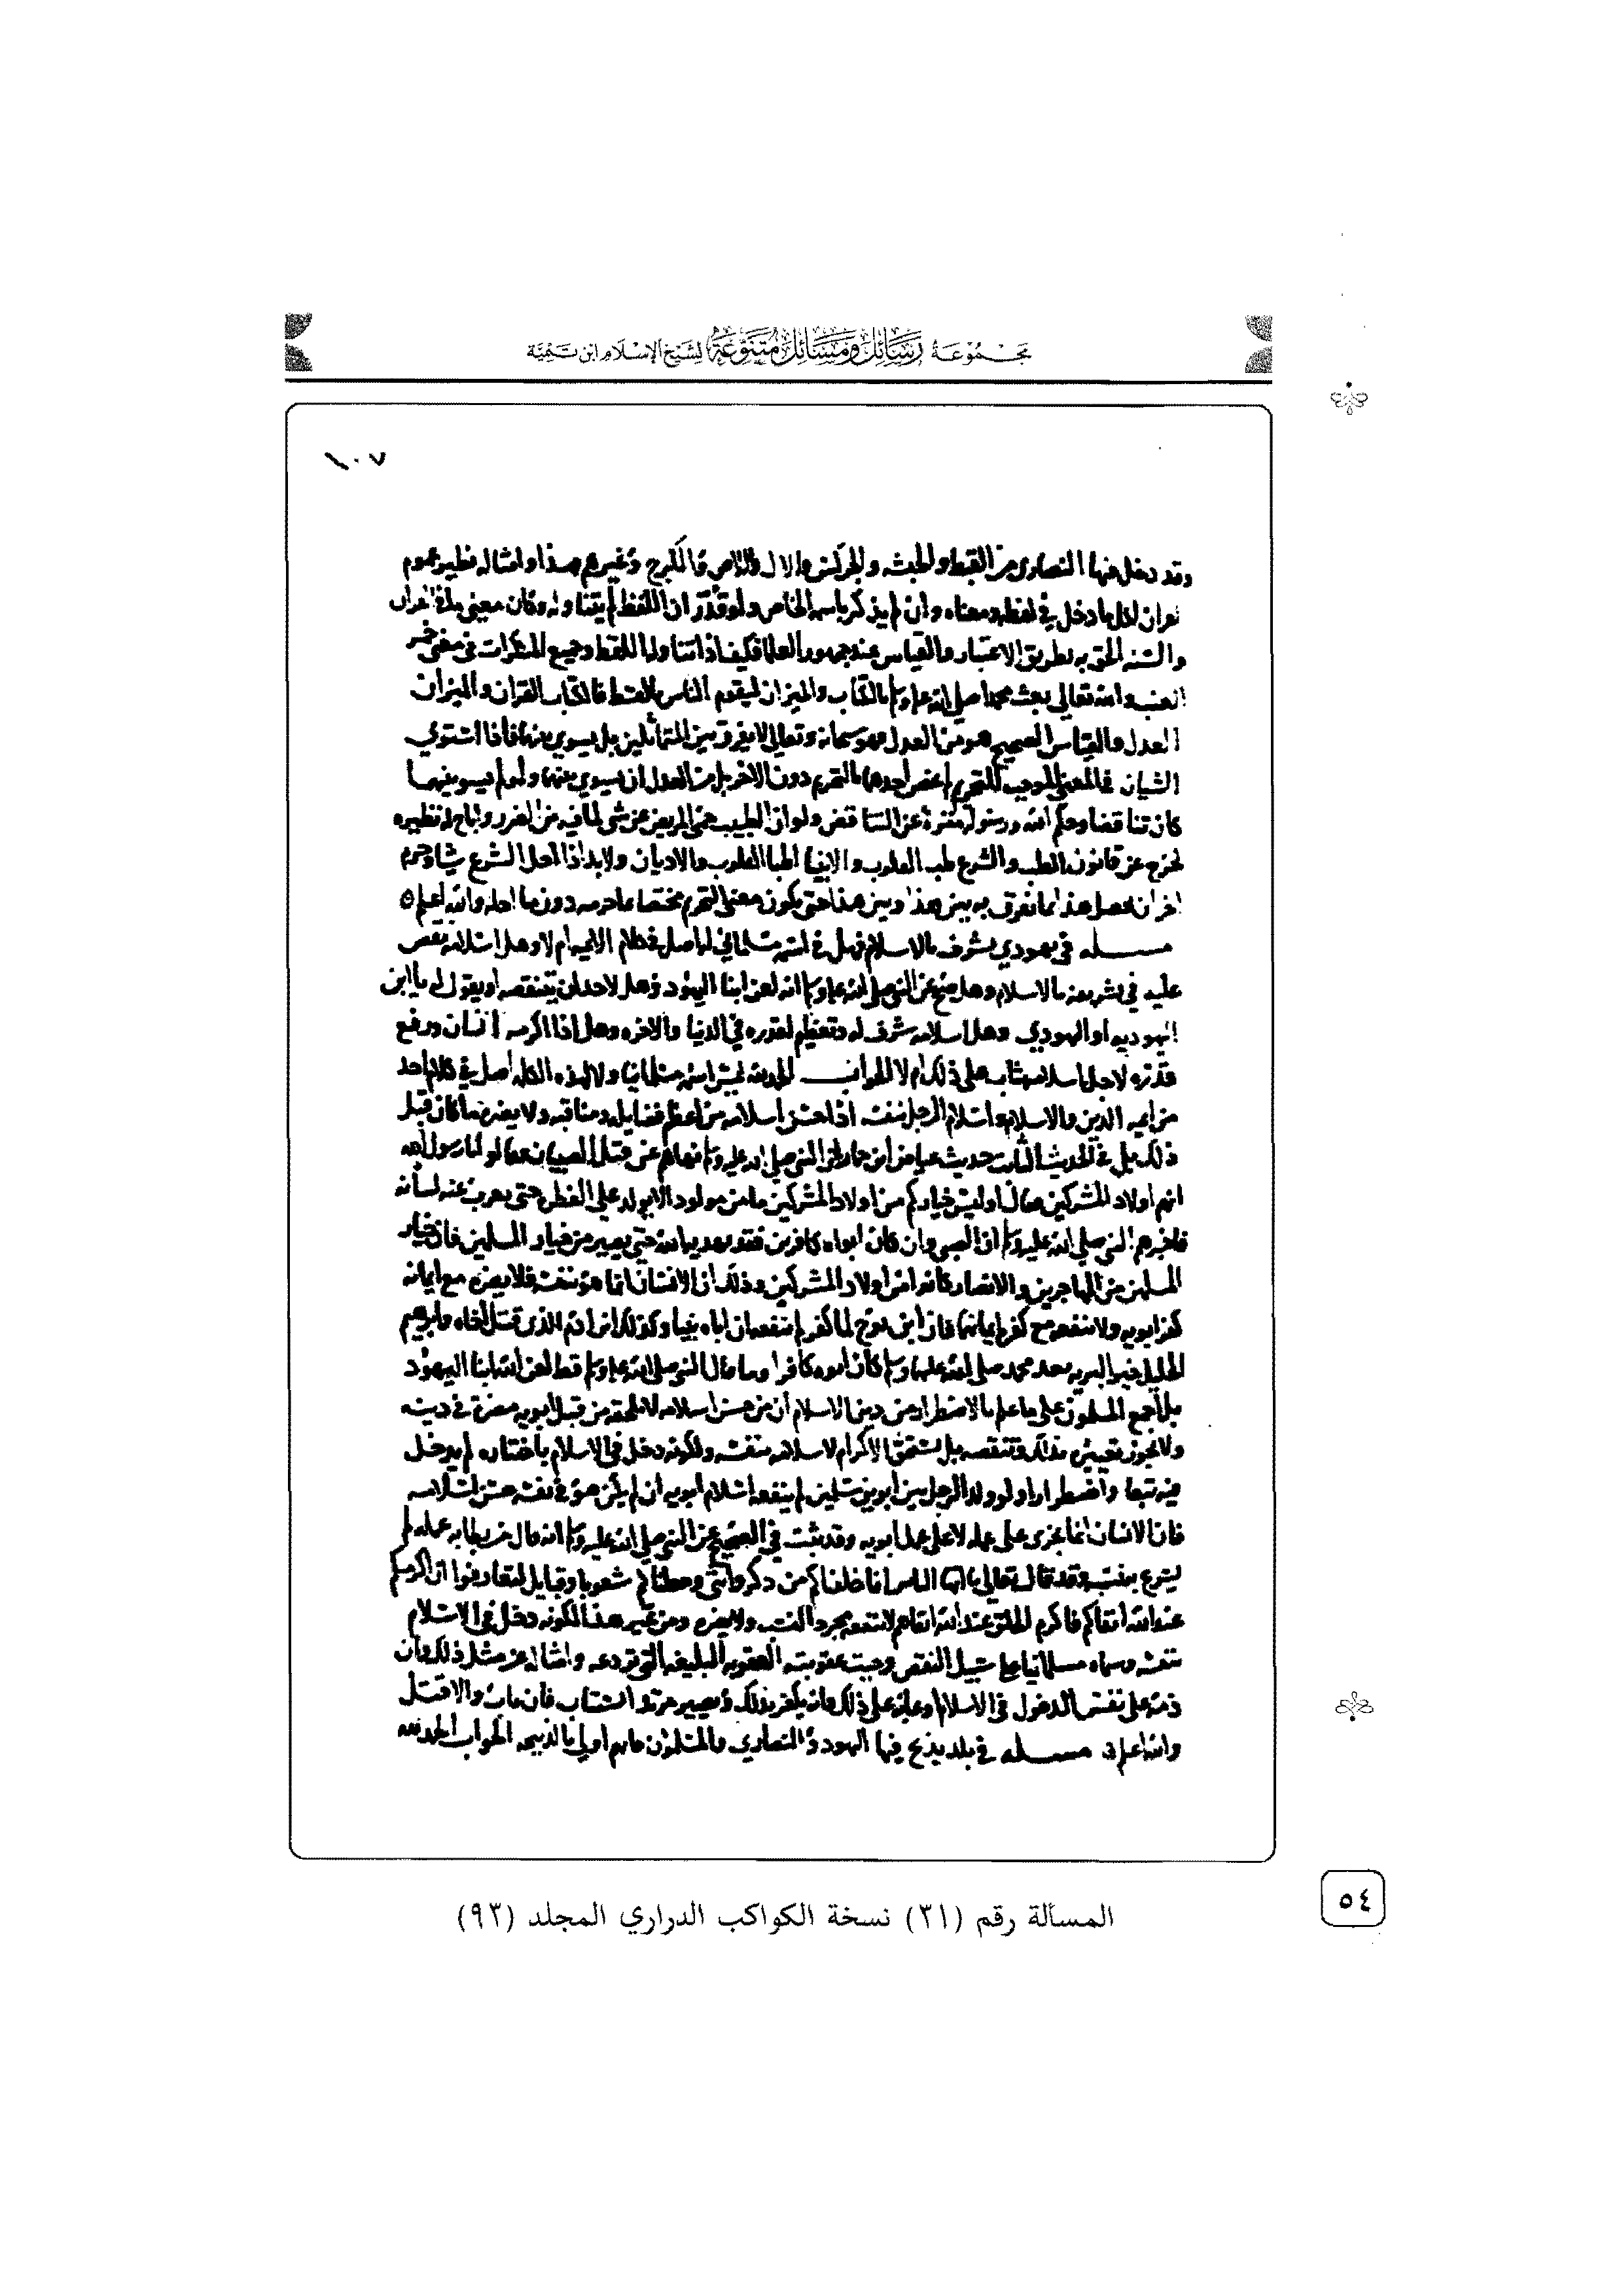 مجموعة رسائل ومسائل متنوعة لشيخ الإسلام ابن تيمية
١٠٧
وقد دخل فيها النصارى من القبط والحبشه والجركس والال والاص والكرج وغيرهم هذا وامثاله نظير عموم
القران لكل ما دخل في لفظه ومعناه وان لم يذكر باسمه الخاص ولو قدر ان اللفظ لم يتناوله وكان معنى ما في القران
والسنه الحق به بطريق الاعتبار والقياس عند جمهور العلما فكيف اذا تناولها اللفظ وجميع المسكرات في معنى خمر
العنب والله تعالى بعث محمدا صلى الله عليه وسلم بالكتاب والميزان ليقوم الناس بالقسط فالكتاب القران والميزان
العدل والقياس الصحيح هو من العدل فهو سبحانه وتعالى لا يفرق بين المتماثلين بل يسوي بينهما فاذا استوي
الشيان في المعنى الموجب للتحريم لم يخص احدهما بالتحريم دون الاخر بل من العدل ان يسوي بينهما ولو لم يسو بينهما
كان تناقضا وحكم الله ورسوله منزه عن التناقض ولو ان الطبيب حمى المريض عن شي لما فيه من الضرر واباح له نظيره
لخرج عن قانون الطب والشرع طب القلوب والانبيا اطبا القلوب والاديان ولا بد اذا احل الشرع شيا وحرم
اخر ان يخص هذا بما نفرق به بين هذا وبين هذا حتى يكون معنى التحريم مختصا بما حرمه دون ما احله والله اعلم
مسله في يهودي تشرف بالاسلام فهل في اسم مسلماني له اصل في كلام الايمه ام لا وهل اسلامه نقص
عليه في تشريفه بالاسلام وهل صح عن النبي صلى الله عليه وسلم انه لعن ابنا اليهود وهل لاحد ان يتنقصه او يقول له يا ابن
اليهوديه او اليهودي وهل اسلامه شرف له وتعظيم لقدره في الدنيا والاخره وهل اذا اكرمه انسان ورفع
قدره لاجل اسلامه يثاب على ذلك ام لا الجواب الحمد لله ليس اسم مسلمانيا ولا لهذه الكلمه اصل في كلام احد
من ايمه الدين والاسلام واسلام الرجل بنفسه اذا حسن اسلامه من اعظم فضايله ومناقبه ولا يضره ما كان قبل
ذلك بل في الحديث الثابت حديث عياض ابن حمار ان النبي صلى الله عليه وسلم نهاهم عن قتل الصبيان فقالوا يا رسول الله
انهم اولاد المشركين فقال اوليس خياركم من اولاد المشركين ما من مولود الا يولد على الفطره حتى يعرب عنه لسانه
فاخبرهم النبي صلى الله عليه وسلم ان الصبي وان كان ابواه كافرين فقد يهديه الله حتى يصير من خيار المسلمين فان خيار
المسلمين من المهاجرين والانصار كانوا من اولاد المشركين وذلك ان الانسان انما هو بنفسه فلا يضره مع ايمانه
كفر ابويه ولا ينفعه مع كفره ايمانهما فان ابن نوح لما كفر لم ينفعه ان اباه نبيا وكذلك ابن ادم الذي قتل اخاه وابرهيم
الخليل خير البريه بعد محمد صلى الله عليهما وسلم كان ابوه كافرا وما قال النبي صلى الله عليه وسلم قط لعن الله ابنا اليهود
بل اجمع المسلمون على ما علم بالاضطرار من دين الاسلام ان من حسن اسلامه لا تلحقه من قبل ابويه مضرة في دينه
ولا يجوز تعييره بذلك وتنقصه بل يستحق الاكرام لاسلامه بنفسه ولكونه دخل في الاسلام باختياره لم يدخل
فيه تبعا واضطرارا ولو ولد الرجل بين ابوين مسلمين لم ينفعه اسلام ابويه ان لم يكن هو في نفسه حسن اسلامه
فان الانسان انما يجزى على عمله لا على عمل ابويه وقد ثبت في الصحيح عن النبي صلى الله عليه وسلم انه قال من بطا به عمله لم
يسرع به نسبه وقد قال تعالى يا ايها الناس انا خلقناكم من ذكر وانثى وجعلناكم شعوبا وقبايل لتعارفوا ان اكرمكم
عند الله اتقاكم فاكرم الخلق عند الله اتقاهم لا تنفعه مجرد النسب ولا يضره ومن عير هذا لكونه دخل في الاسلام
بنفسه وسماه مسلمانيا على سبيل النقص وجبت عقوبته العقوبه البليغه التي تردعه وامثاله عن مثل ذلك وان
ذمه على نفس الدخول في الاسلام وعابه على ذلك فانه يكفر بذلك ويصير مرتدا يستتاب فان تاب والا قتل
والله اعلم مسله في بلد يذبح فيها اليهود والنصاري والمسلمون فايهم اولي بالذبيحه الجواب الحمد لله
المسألة رقم (٣١) نسخة الكواكب الدراري المجلد (٩٣)
٥٤